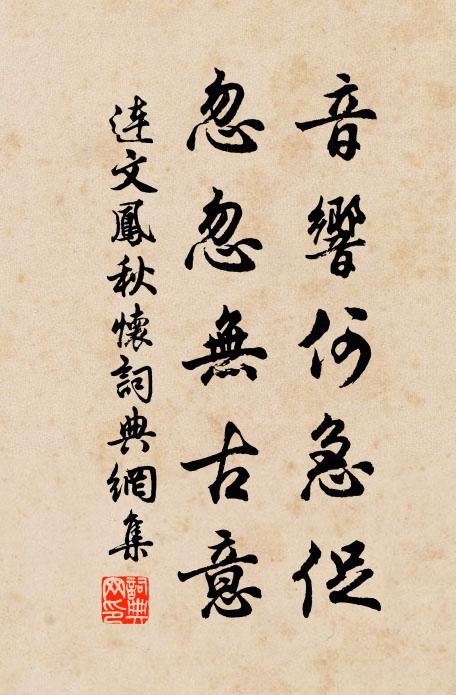 音響何急促
忽忽無古意
連文鳳秋懷詞典網集
詞典網印